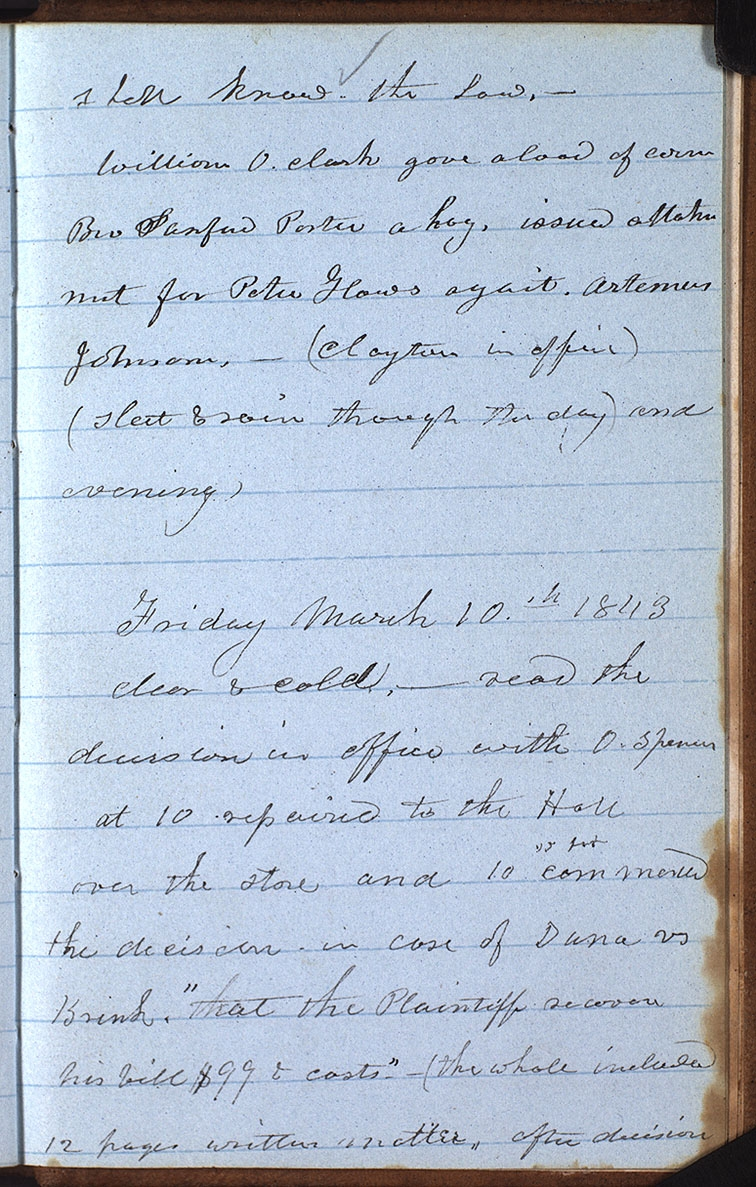 shall know the Law.—
William O. clark gave a load of corn
Bro Sanford Porter a hog. issued attachm
nt for Peter Haws againt. Artemus
Johnson. — (clayton in office)
(sleet & rain through the day) and
evening)
Friday March 10.th 1843
clear & cold. — read the
decision in office with O. Spencer
at 10 repaired to the Hall
over the store and 10 commenced
the decision in case of Dana vs
Brink. "that the Plaintiff recover
his bill $99 & costs"—(the whole included
12 pages written matter,, after decision